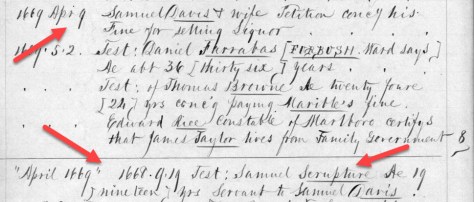 1669 Apl 9 Samuel Davis & wife Petition conc'g his
Fine for selling liquor
1669. 5. 2. Test: Daniel Farrabas [FORBUSH. Ward says]
Ae abt 36 [thirty six] years.
Test: of Thomas Browne Ae twenty foure
[24] yrs conc'g paying Marible's fine.
Edward Rice Constable of Marlboro certifys
that James Taylor lives from Family Government 8
"April 1669" 1668.9.19 Test: Samuel Scrupture Ae 19
[nineteen] yrs Servant to Samuel Davis.